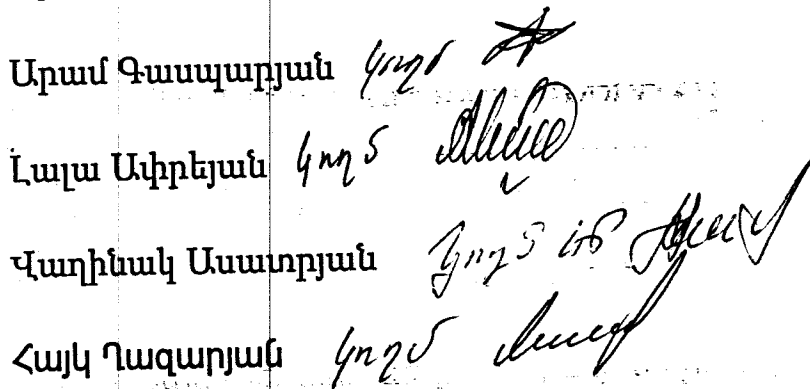 Արամ Գասպարյան կողմ
Լալա Ափրեյան կողմ
Վաղինակ Ասատրյան կողմ եմ
Հայկ Ղազարյան կողմ